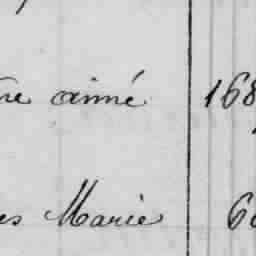 re aimé 168
es Marie 60